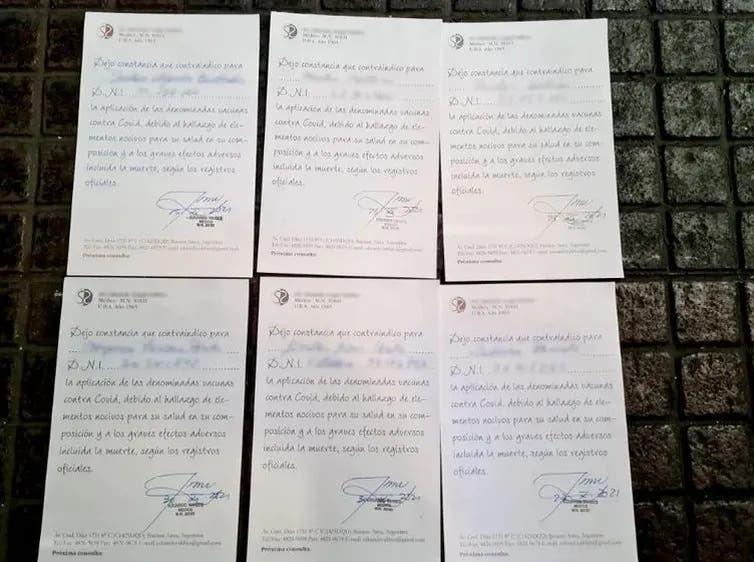 Médico - M.N.
U.B.A. Año 1965
Dejo constancia que contraindico para
D.N.I.
la aplicación de las denominadas vacunas
contra Covid, debido al hallazgo de ele-
mentos nocivos para su salud en su com-
posición y a los graves efectos adversos
incluida la muerte, según los registros
oficiales.
2021
MEDICO
Av. Cnel. Díaz 1731 8º C Buenos Aires, Argentina
Tel/Fax: Part: E-mail:
Próxima consulta:
Médico - M.N.
U.B.A. Año 1965
Dejo constancia que contraindico para
D.N.I.
la aplicación de las denominadas vacunas
contra Covid, debido al hallazgo de ele-
mentos nocivos para su salud en su com-
posición y a los graves efectos adversos
incluida la muerte, según los registros
oficiales.
2021
MEDICO
Av. Cnel. Díaz 1731 8º C Buenos Aires, Argentina
Tel/Fax: Part: E-mail:
Próxima consulta:
Médico - M.N.
U.B.A. Año 1965
Dejo constancia que contraindico para
D.N.I.
la aplicación de las denominadas vacunas
contra Covid, debido al hallazgo de ele-
mentos nocivos para su salud en su com-
posición y a los graves efectos adversos
incluida la muerte, según los registros
oficiales.
2021
MEDICO
Av. Cnel. Díaz 1731 8º C Buenos Aires, Argentina
Tel/Fax: Part: E-mail:
Próxima consulta:
Médico - M.N.
U.B.A. Año 1965
Dejo constancia que contraindico para
D.N.I.
la aplicación de las denominadas vacunas
contra Covid, debido al hallazgo de ele-
mentos nocivos para su salud en su com-
posición y a los graves efectos adversos
incluida la muerte, según los registros
oficiales.
2021
MEDICO
Av. Cnel. Díaz 1731 8º C Buenos Aires, Argentina
Tel/Fax: Part: E-mail:
Próxima consulta:
Médico - M.N.
U.B.A. Año 1965
Dejo constancia que contraindico para
D.N.I.
la aplicación de las denominadas vacunas
contra Covid, debido al hallazgo de ele-
mentos nocivos para su salud en su com-
posición y a los graves efectos adversos
incluida la muerte, según los registros
oficiales.
2021
MEDICO
Av. Cnel. Díaz 1731 8º C Buenos Aires, Argentina
Tel/Fax: Part: E-mail:
Próxima consulta:
Médico - M.N.
U.B.A. Año 1965
Dejo constancia que contraindico para
D.N.I.
la aplicación de las denominadas vacunas
contra Covid, debido al hallazgo de ele-
mentos nocivos para su salud en su com-
posición y a los graves efectos adversos
incluida la muerte, según los registros
oficiales.
2021
MEDICO
Av. Cnel. Díaz 1731 8º C Buenos Aires, Argentina
Tel/Fax: Part: E-mail:
Próxima consulta: